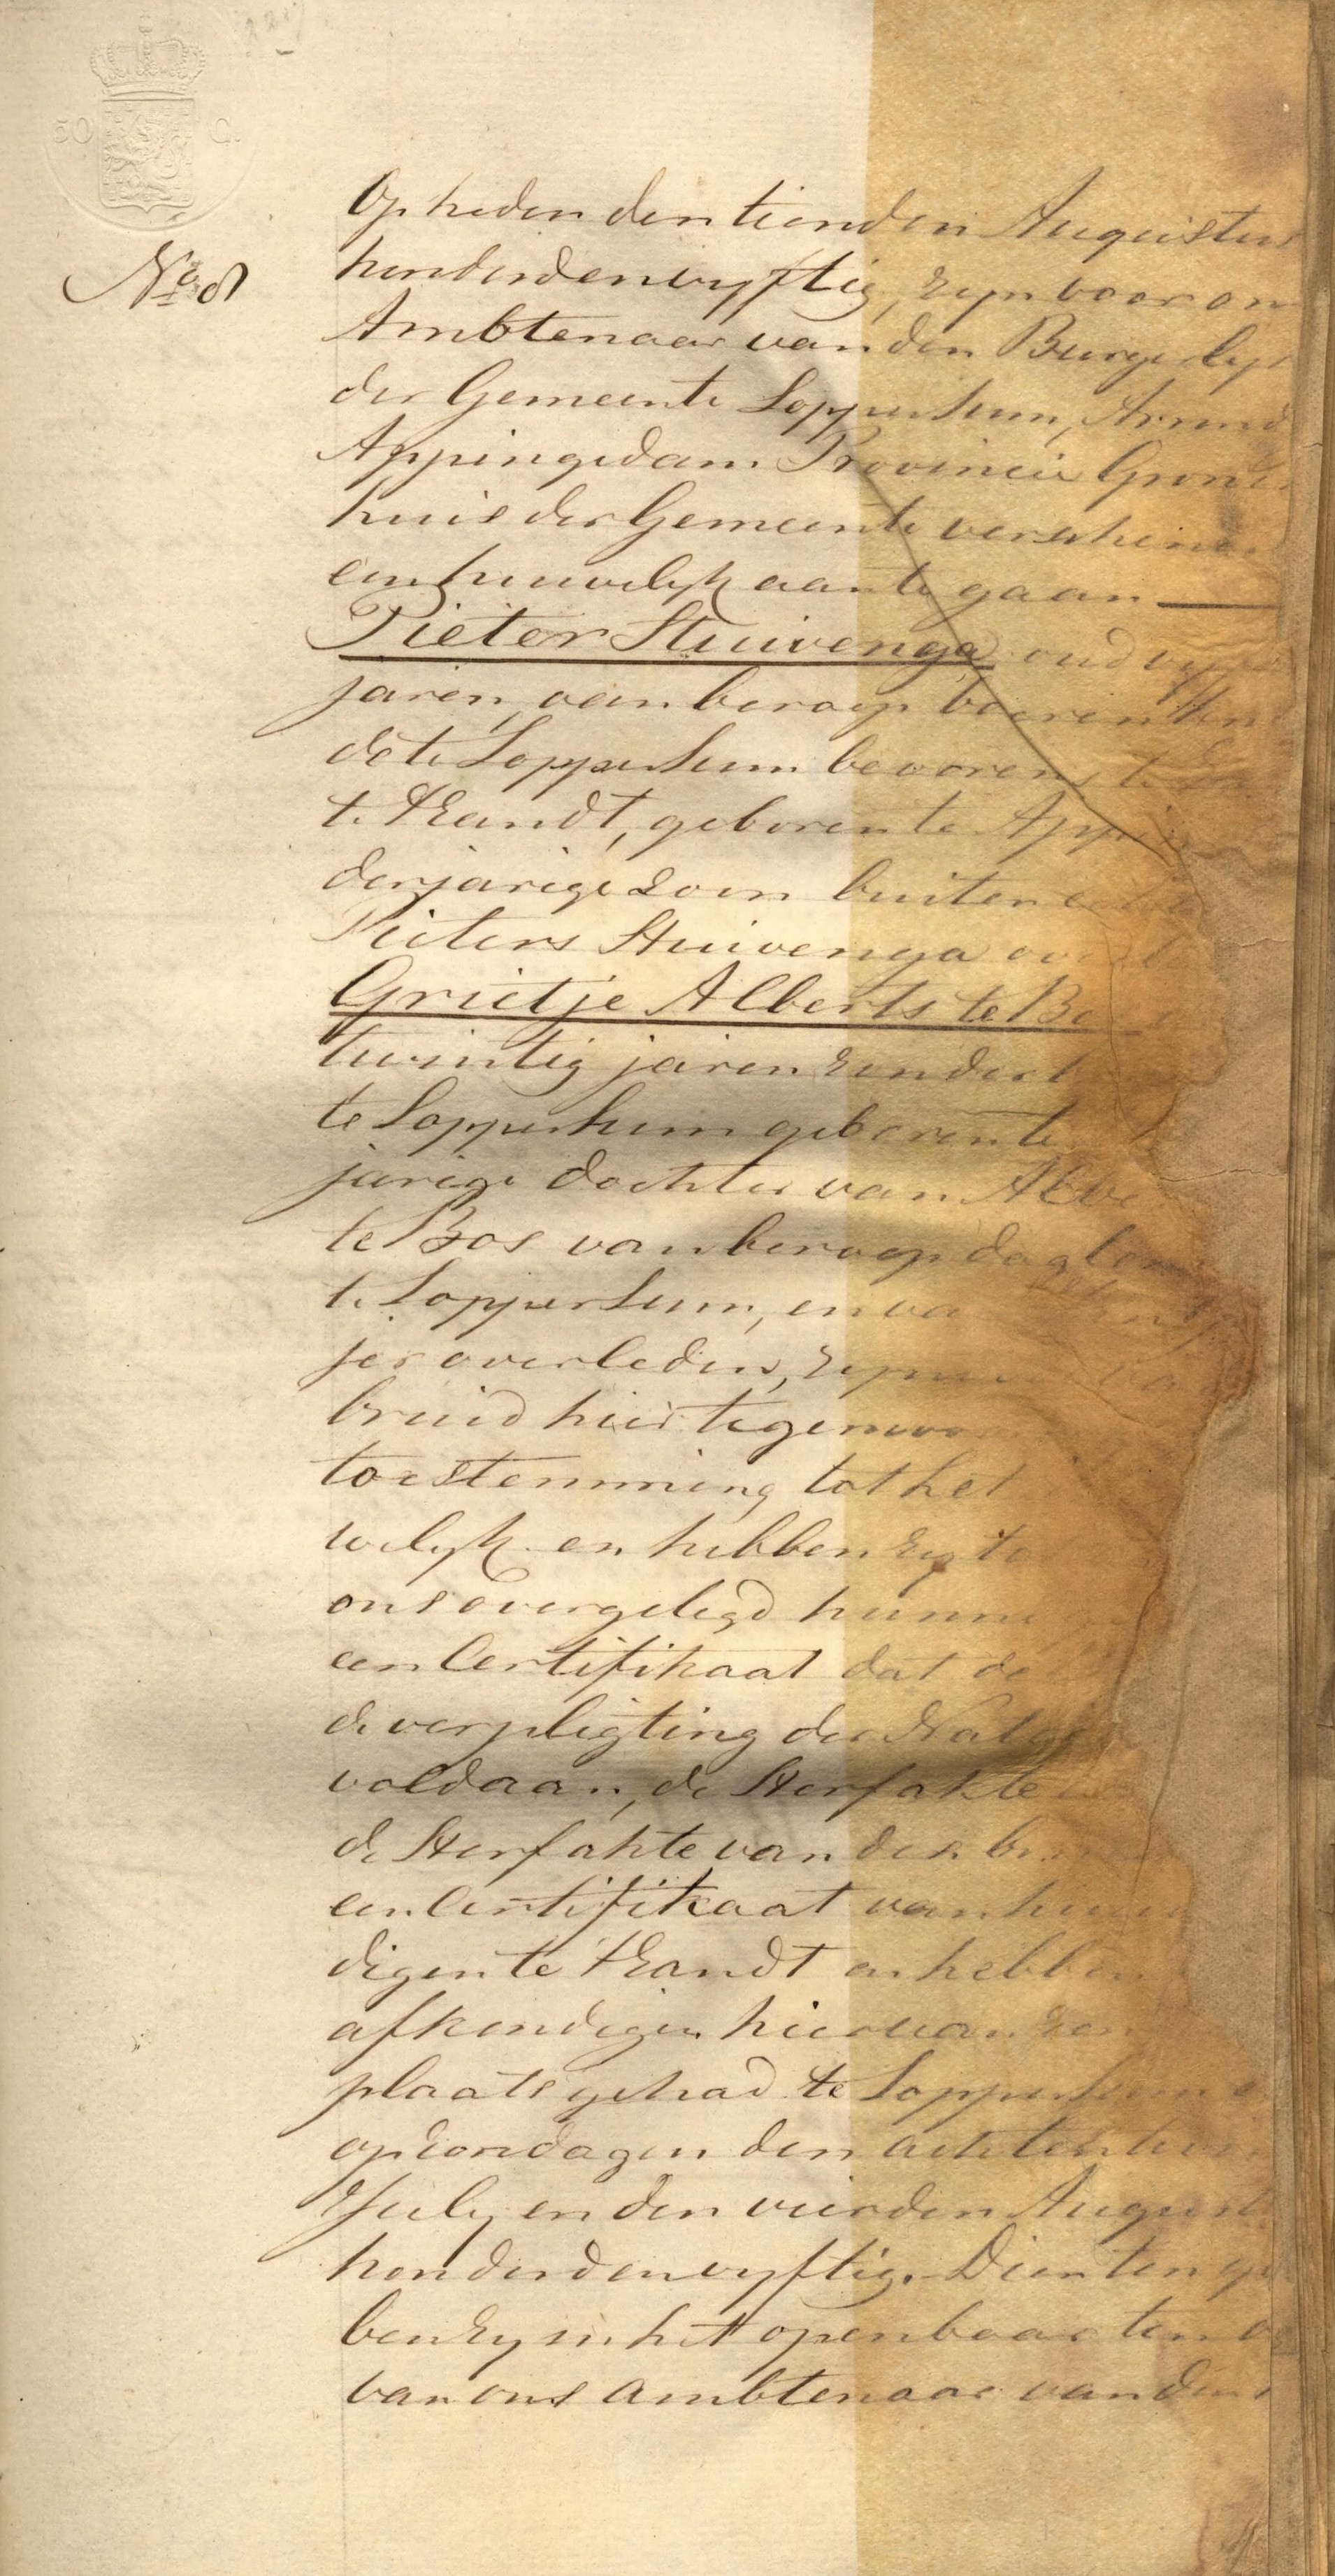 50 C.
No 8
Op heden den tienden Augustus
honderdenvyftig, zyn voor on
Ambtenaar van den Burgerlyk
der Gemeente Loppersum, Arrond
Appingedam Provincie Gron
huis der Gemeente verschenen
een huwelyk aan te gaan
Pieter Stuivenga oud vyf
jaren, van beroep boeren
de te Loppersum bevorens te
t Zandt, geboren te Appin
derjarige zoon buiten
Pieters Stuivenga ove
Grietje Alberts te Bo
twintig jaren zonder b
te Loppersum geboren te
jarige dochter van Albe
te Bos van beroep dagloo
te Loppersum, en va
jes overleden, zynde
bruid hier tegenwoo
toestemming tot het
welyk en hebben zy to
ons overgelegd hunne
een Certifikaat dat de
de verpligting der Nat
voldaan, de Sterfakte
de Sterfakte van des br
een Certifikaat van hu
digen te 't Zandt en hebben
afkondigen hiervan zon
plaats gehad te Loppersum e
op zondagen den acht en
July en den vierden August
honderdenvyftig. Dien ten ge
ben zy in het openbaar ten o
van ons Ambtenaar van den